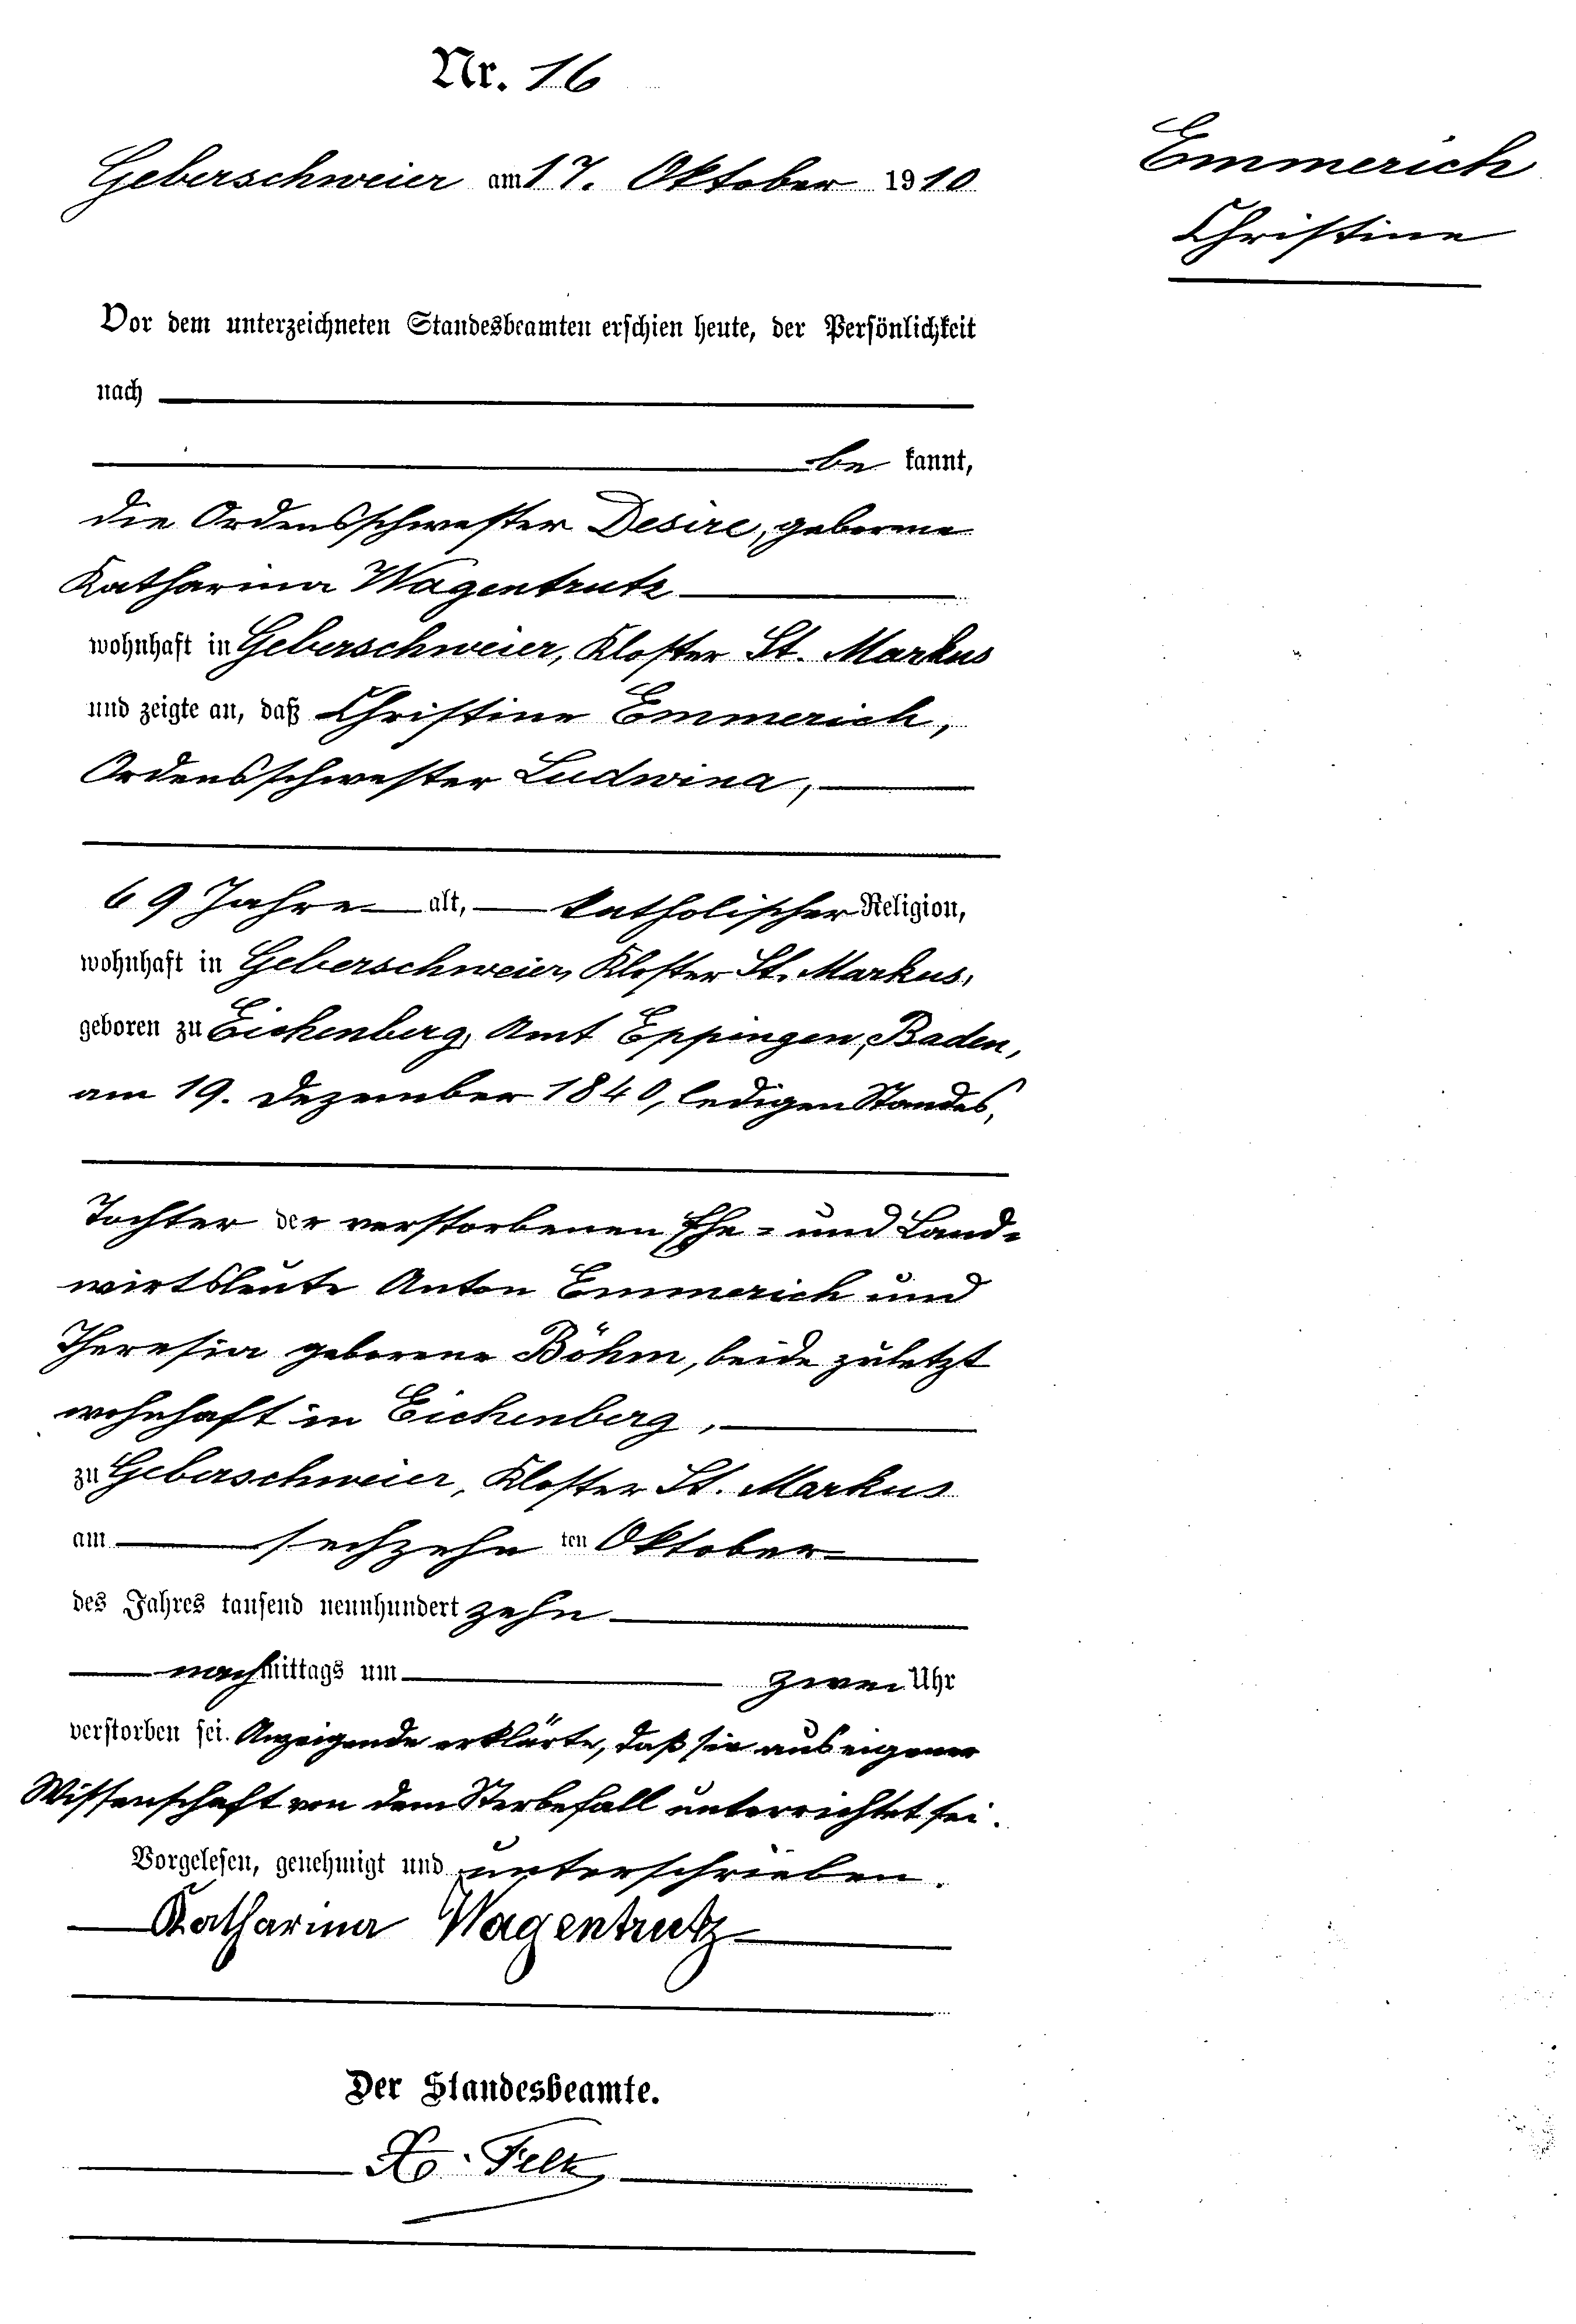 Nr. 16
Geberschweier am 17. Oktober 1910
Emmerich
Christine
Vor dem unterzeichneten Standesbeamten erschien heute, der Persönlichkeit
nach
be kannt,
die Ordensschwester Desire, geborene
Katharina Wagentrutz
wohnhaft in Geberschweier, Kloster St. Markus
und zeigte an, daß Christine Emmerich,
Ordensschwester Ludwina,
69 Jahre alt, katholischer Religion,
wohnhaft in Geberschweier, Kloster St. Markus,
geboren zu Eichenberg, Amt Eppingen, Baden,
am 19. Dezember 1840, ledigen Standes,
Tochter der verstorbenen Ehe- und Land-
wirtsleute Anton Emmerich und
Theresia geborene Böhm, beide zuletzt
wohnhaft in Eichenberg,
zu Geberschweier, Kloster St. Markus
am sechzehn ten Oktober
des Jahres tausend neunhundert zehn
nachmittags um zwei Uhr
verstorben sei. Anzeigende erklärte, daß sie aus eigener
Wissenschaft von dem Sterbefall unterrichtet sei.
Vorgelesen, genehmigt und unterschrieben.
Katharina Wagentrutz
Der Standesbeamte.
X. Feltz